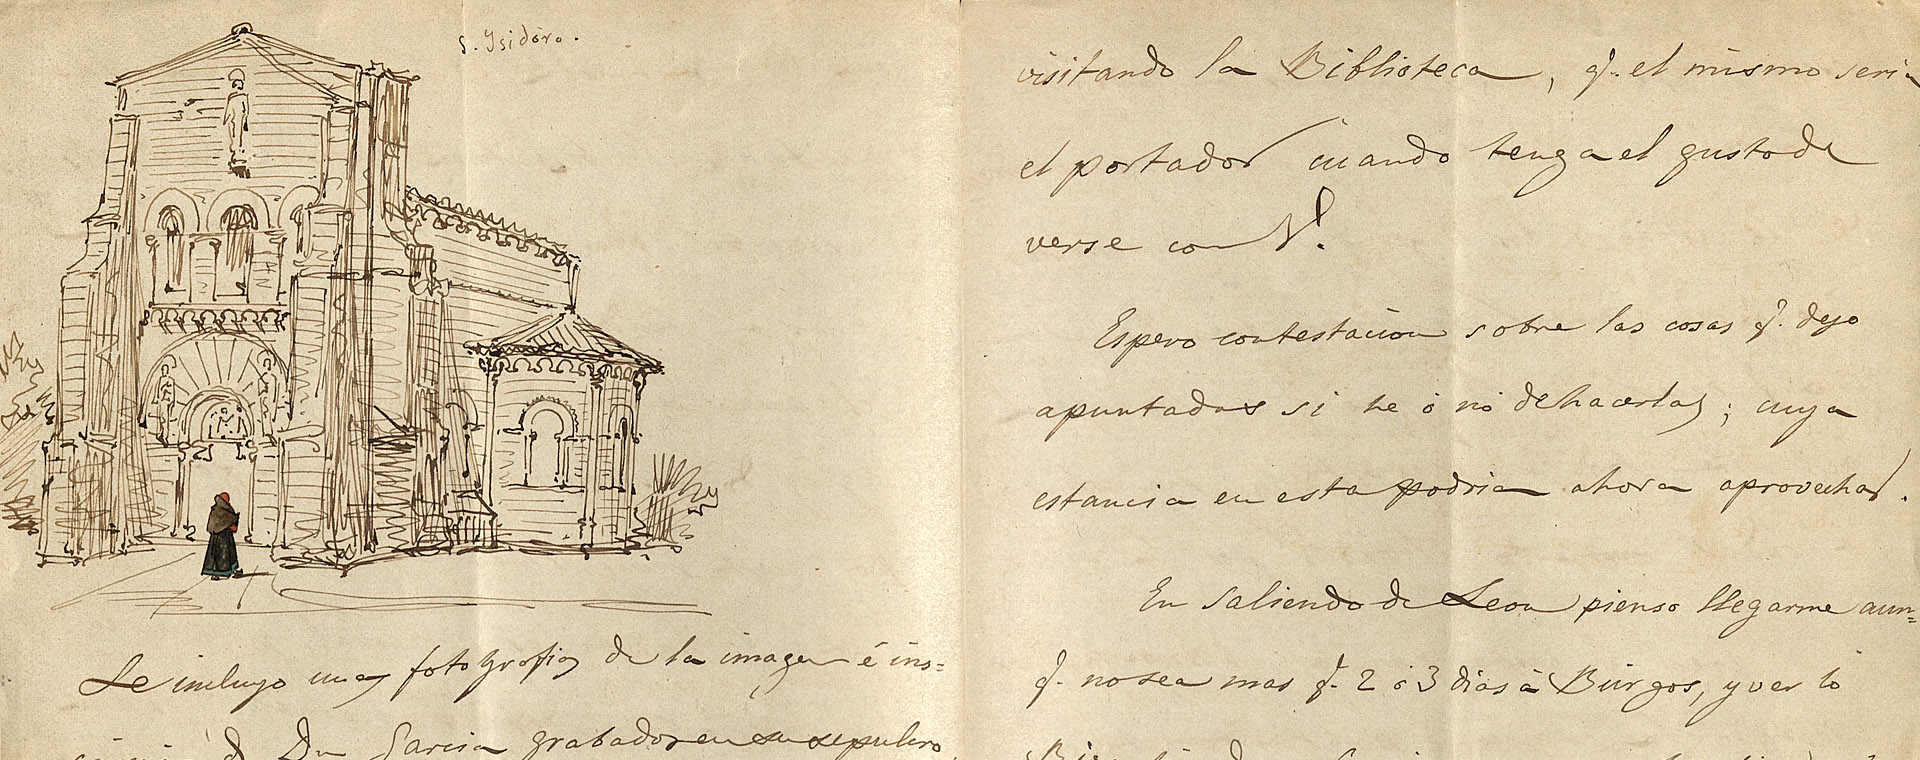 S. Ysidóro.
Le incluyo unas fotografias de la imagen é ins=
Dn Garcia grabados en su sepulcro,
visitando la Biblioteca, q. el mismo seria
el portador cuando tenga el gusto de
verse con V.
Espero contestacion sobre las cosas q. dejo
apuntadas si he ó nó de hacerlas; cuya
estancia en esta podria ahora aprovechar.
En saliendo de Leon pienso llegarme aun=
q. no sea mas q. 2 ó 3 dias à Búrgos, y ver lo